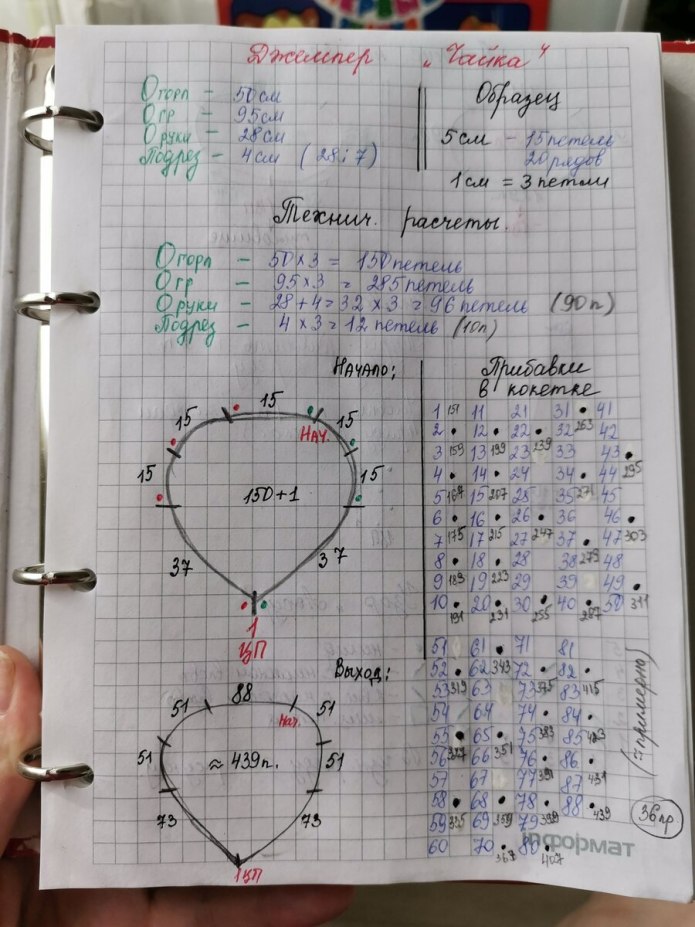 Джемпер „Чайка“
Огорл – 50 см
Огр – 95 см
Оруки – 28 см
Подрез – 4 см (28:7)
Образец
5 см – 15 петель
20 рядов
1 см = 3 петли
Технич. расчеты.
Огорл – 50 х 3 = 150 петель
Огр – 95 х 3 = 285 петель
Оруки – 28 + 4 = 32 х 3 = 96 петель (90 п)
Подрез – 4 х 3 = 12 петель (10п)
Начало:
15
15 15
Нач.
15 15
150+1
37 37
1
ЦП
Выход:
88
51 51
Нач.
51 51
≈ 439 п.
73 73
1 ЦП
Прибавки
в кокетке
1 151 11 21 31 • 41
2 • 12 • 22 • 32 263 42
3 159 13 199 23 239 33 43 •
4 • 14 • 24 34 • 44 295
5 167 15 207 25 35 271 45
6 • 16 • 26 • 36 46 •
7 175 17 215 27 247 37 • 47 303
8 • 18 • 28 38 279 48
9 183 19 223 29 39 49 •
10 • 191 20 • 231 30 • 255 40 • 287 50 311
51 61 • 71 81
52 • 62 343 72 • 82 •
53 319 63 73 375 83 415
54 64 74 • 84 •
55 • 65 • 75 383 85 423
56 327 66 351 76 • 86 •
57 67 77 391 87 431
58 • 68 • 78 • 88 • 439
59 335 69 359 79 399
60 70 • 367 80 • 407
(≈ примерно)
36 пр.
информат